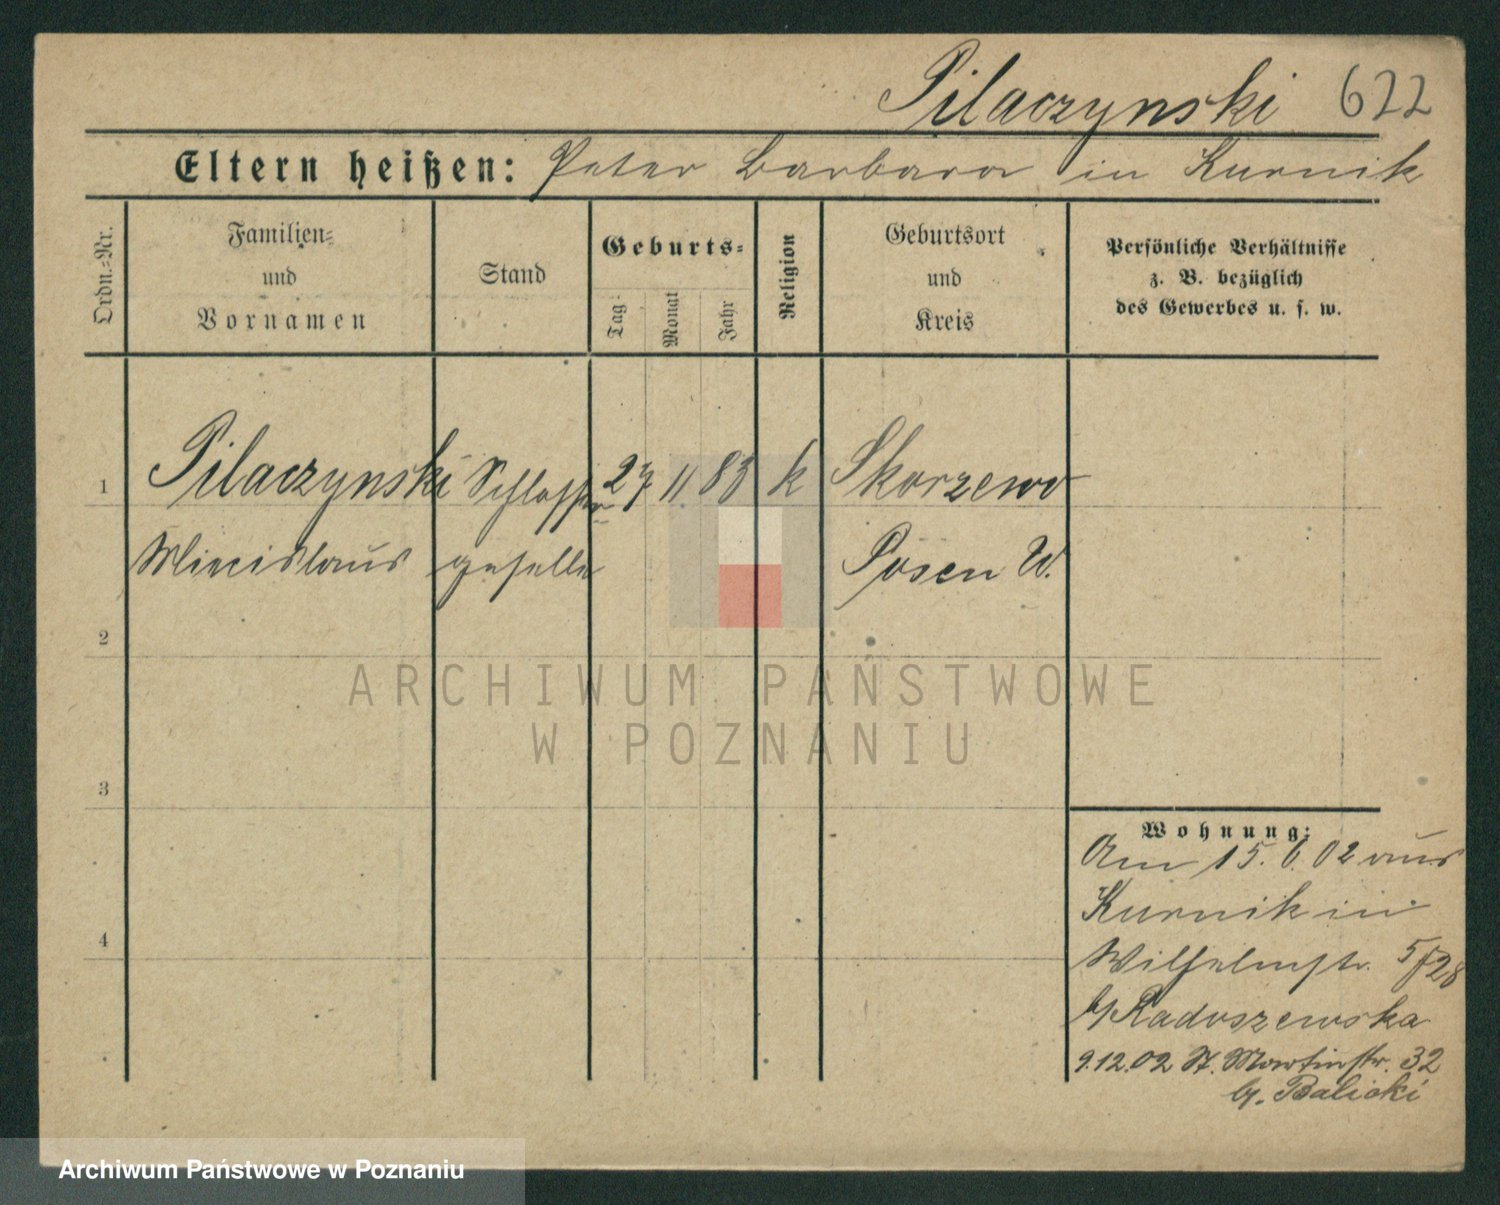 Pilaczynski 622
Eltern heißen: Peter Barbara in Kurnik
Ordn.-Nr.
Familien-
und
Vornamen
Stand
Geburts-
Tag
Monat
Jahr
Religion
Geburtsort
und
Kreis
Persönliche Verhältnisse
z. B. bezüglich
des Gewerbes u. s. w.
1 Pilaczynski Schlosser 27 11 83 k Skorzewo
Miecislaus geselle Posen W.
2
3
4
Wohnung:
Am 15. 6. 02 aus
Kurnik in
Wilhelmstr. 5/28
b/ Radoszewska
9.12.02 St. Martinstr. 32
b/. Balicki
ARCHIWUM PAŃSTWOWE
W POZNANIU
Archiwum Państwowe w Poznaniu